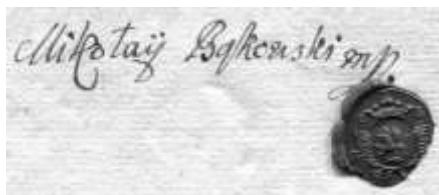 Mikołaÿ Bąkowski mp.